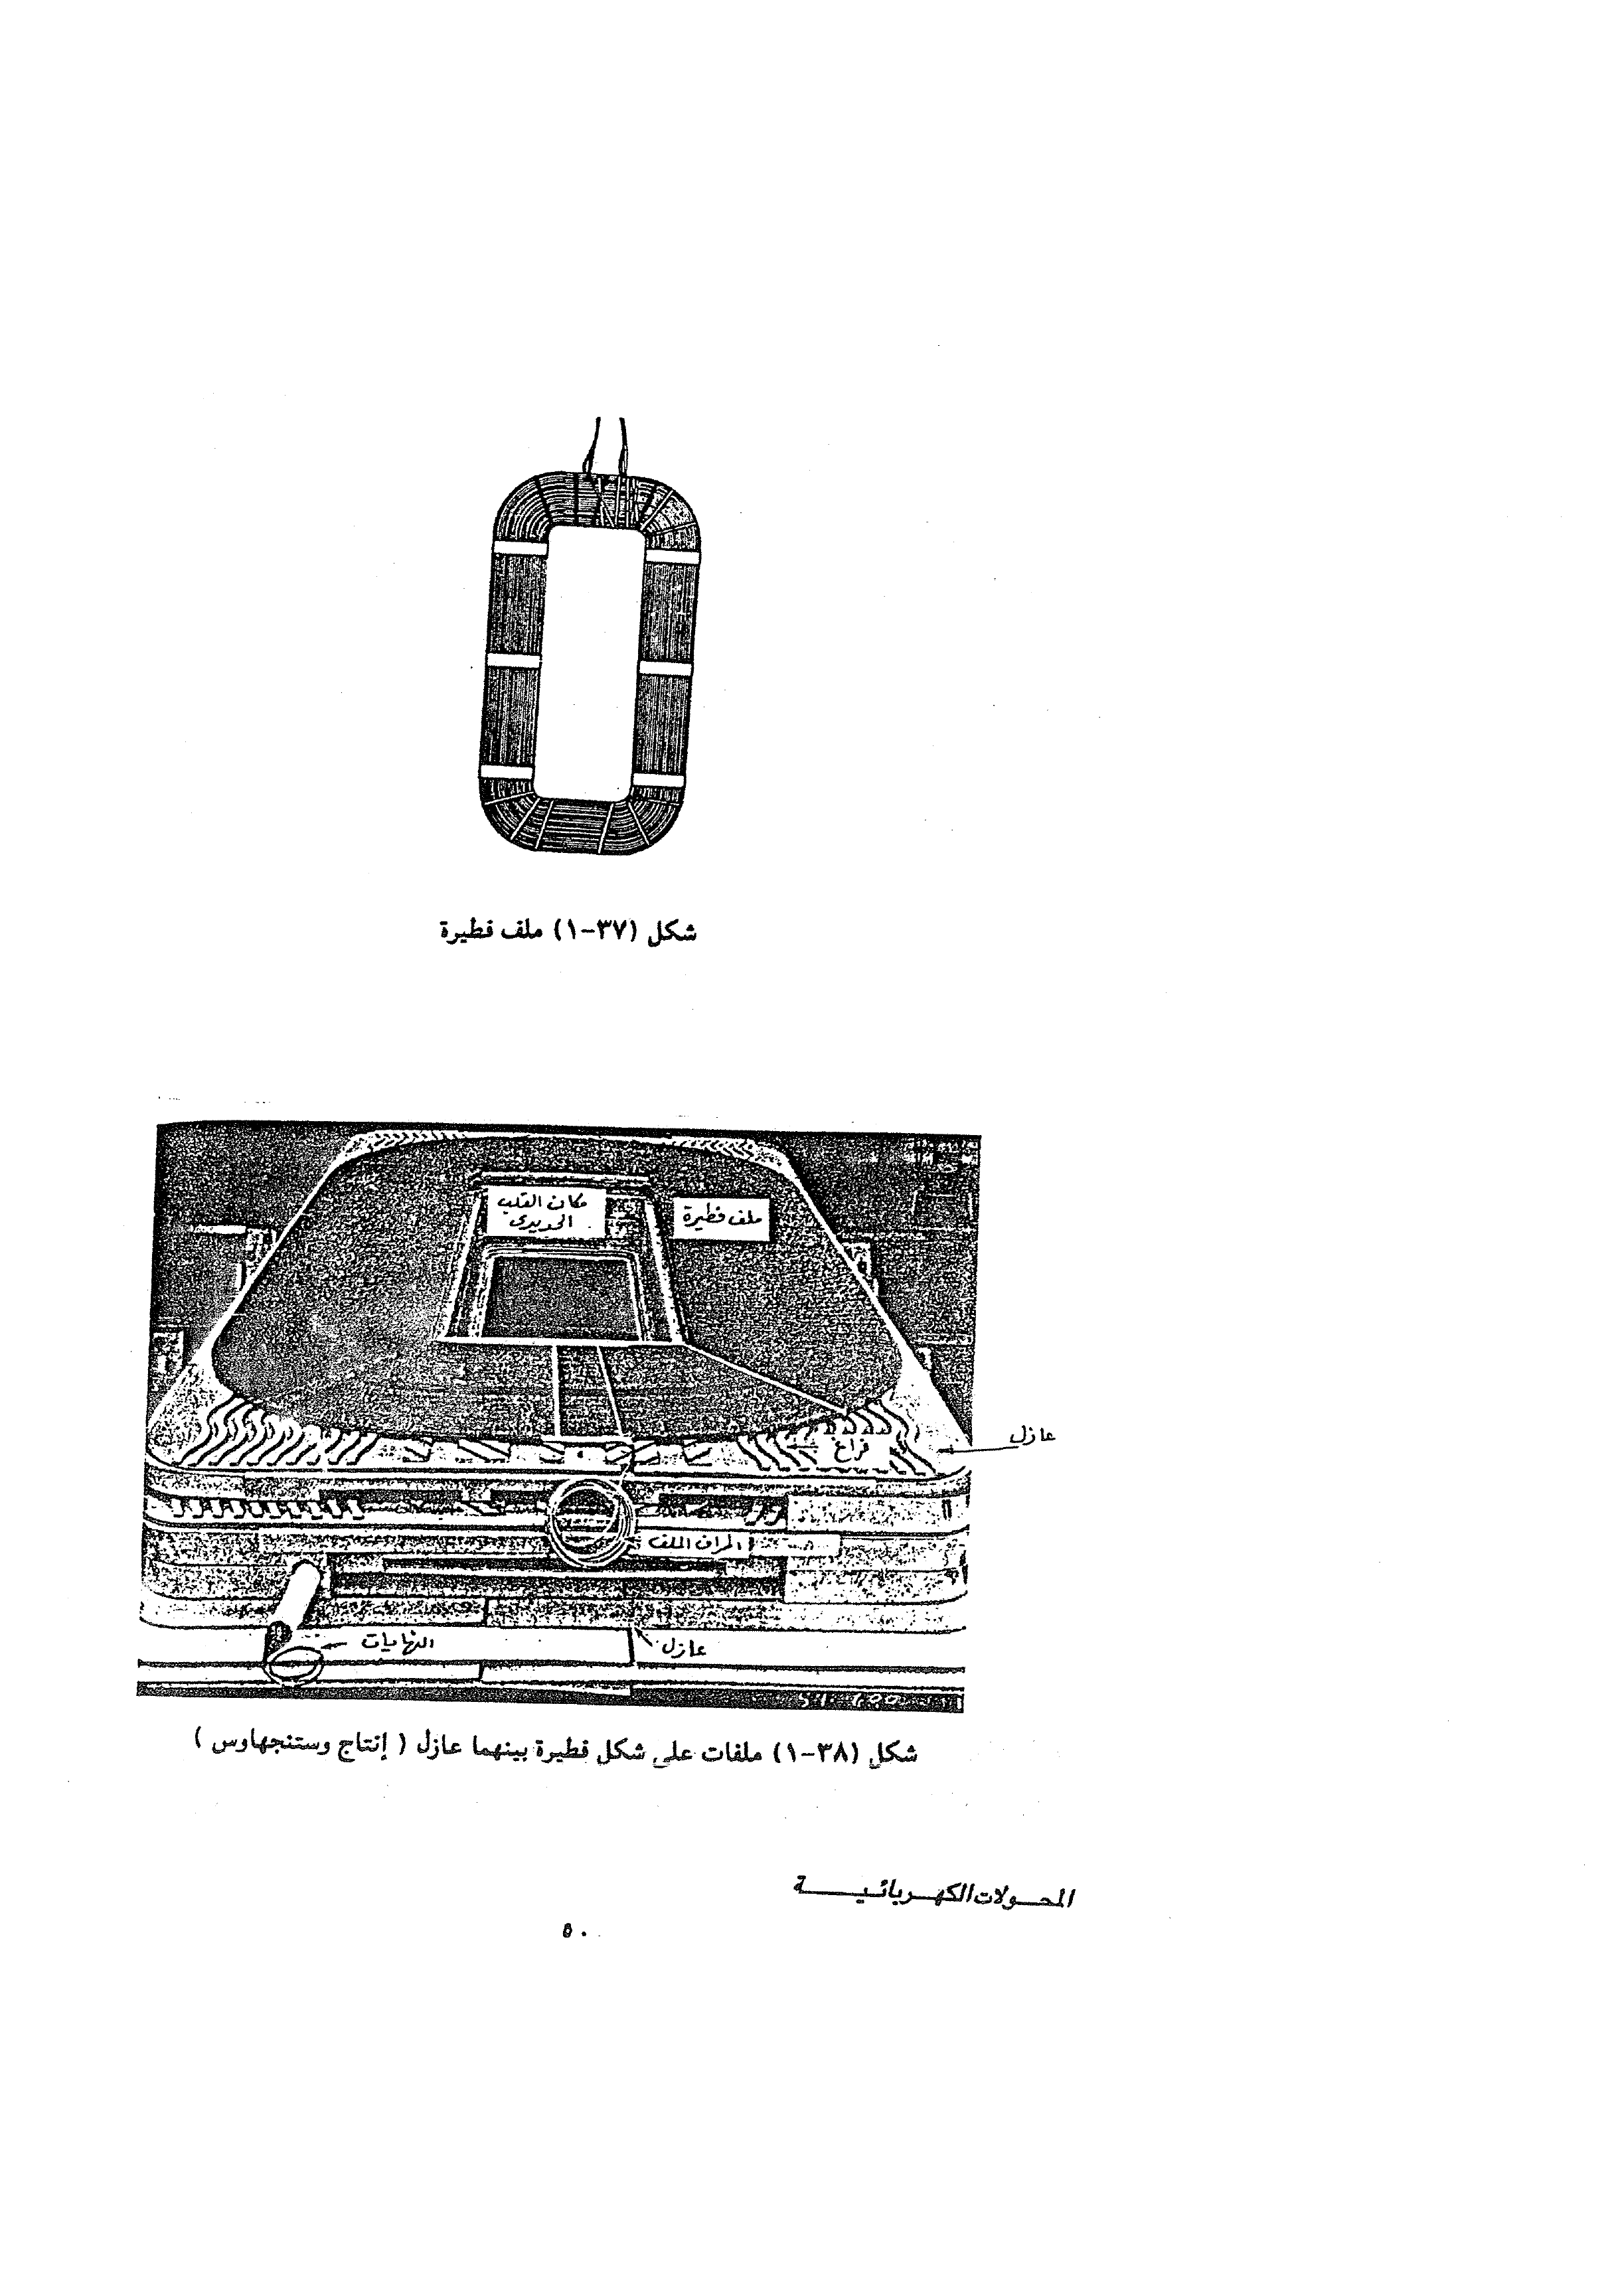 شكل (٣٧-١) ملف فطيرة
مكان القلب
الحديدى
ملف فطيرة
عازل
فراغ
أطراف الملف
النهايات
عازل
شكل (٣٨-١) ملفات على شكل فطيرة بينهما عازل ( إنتاج وستنجهاوس )
المحولات الكهربائية
٥٠